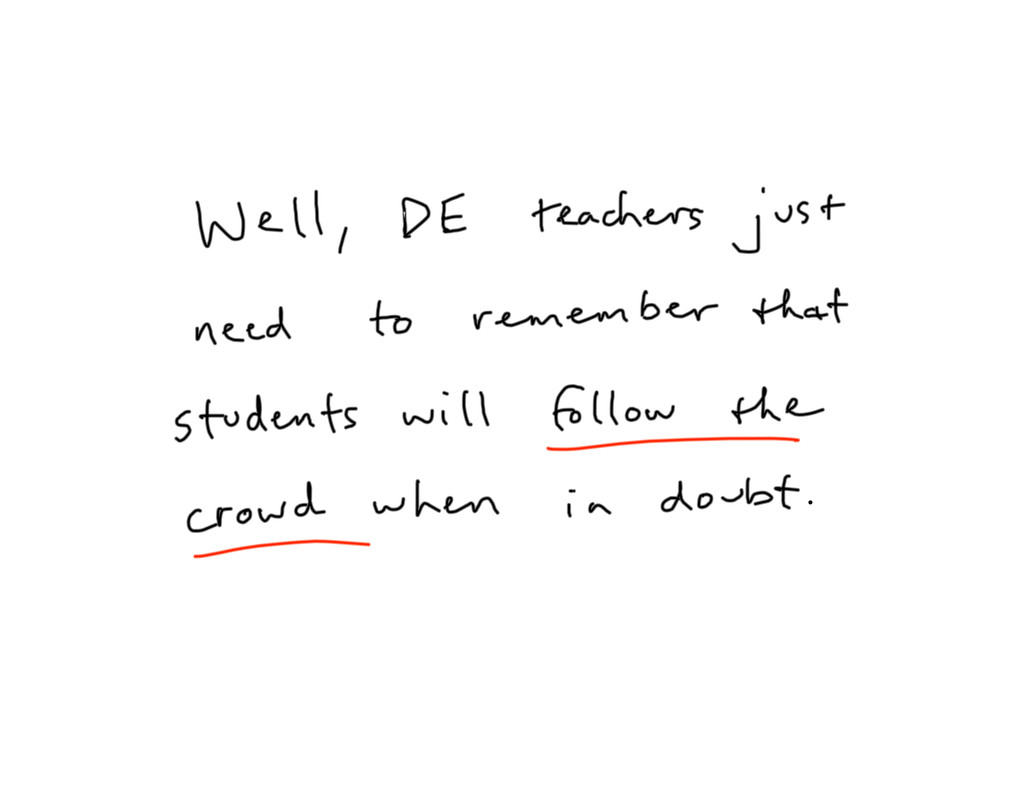 Well, DE teachers just
need to remember that
students will follow the
crowd when in doubt.